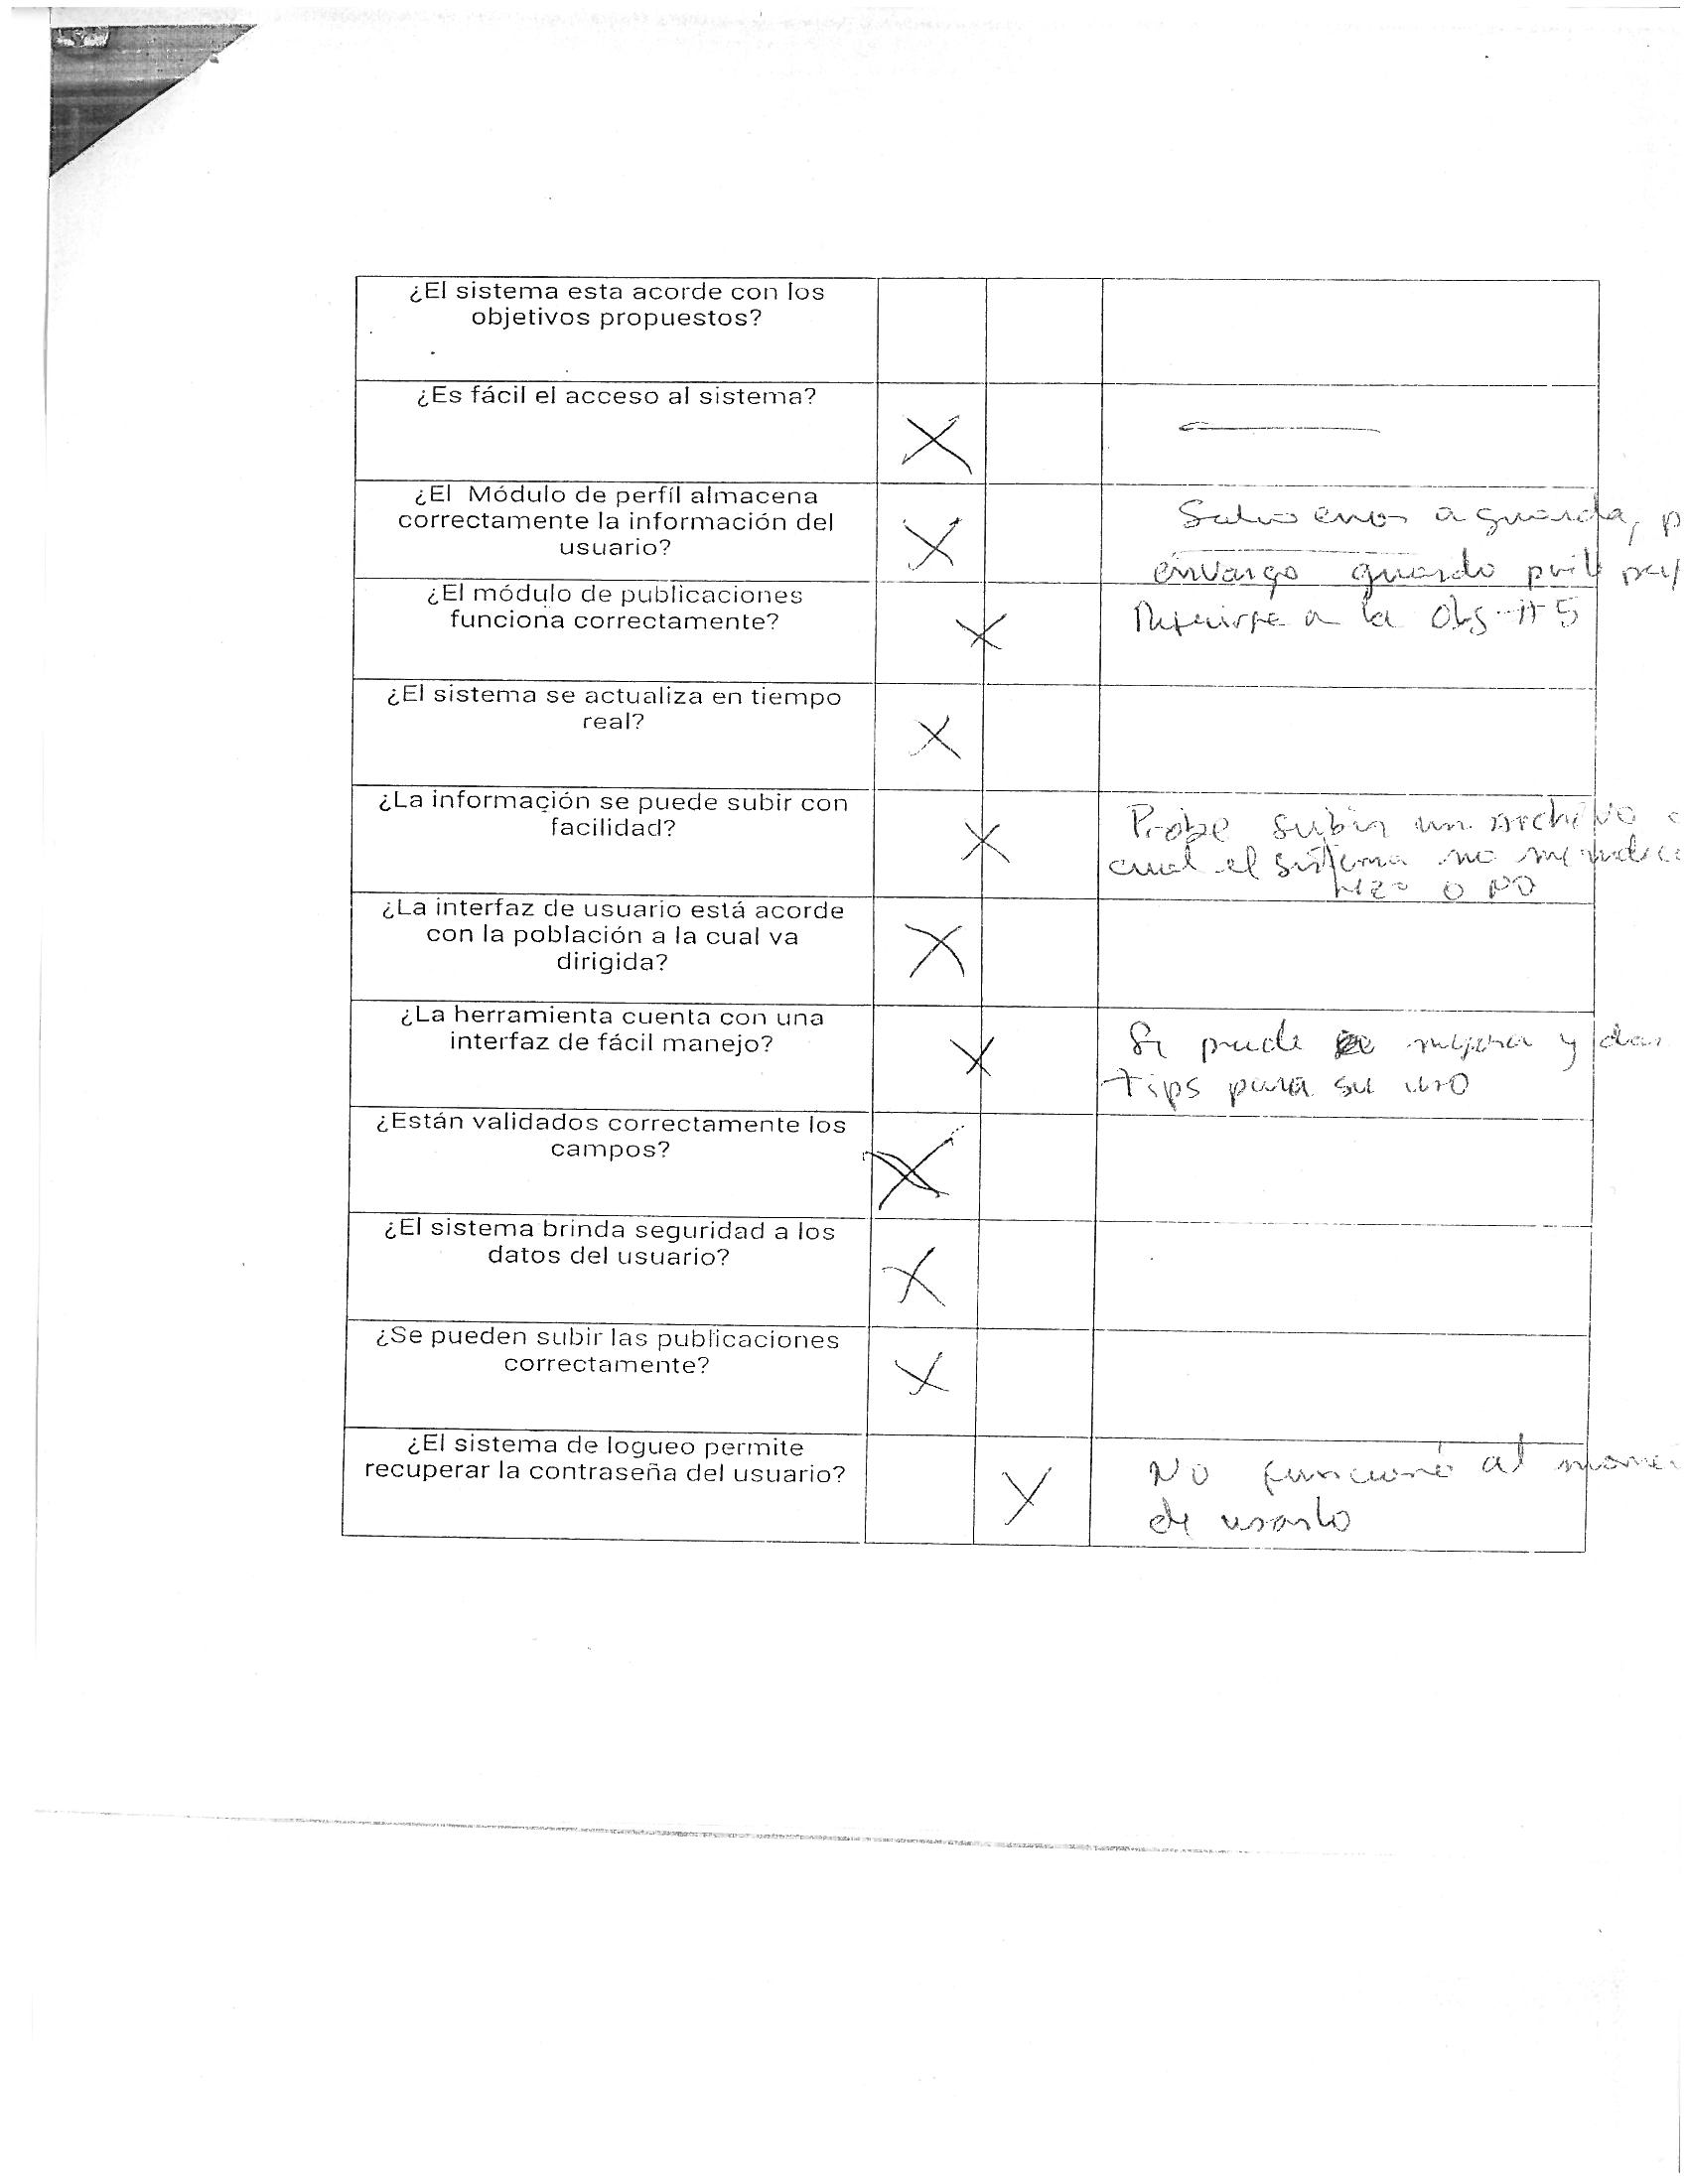 ¿El sistema esta acorde con los
objetivos propuestos?
¿Es fácil el acceso al sistema?
¿El Módulo de perfíl almacena
correctamente la información del
usuario?
Salvo a guarda, p
guardo
¿El módulo de publicaciones
funciona correctamente?
a la Obs-#5
¿El sistema se actualiza en tiempo
real?
¿La información se puede subir con
facilidad?
Probe subir un archivo
cual el sistema no me indica
hizo o NO
¿La interfaz de usuario está acorde
con la población a la cual va
dirigida?
¿La herramienta cuenta con una
interfaz de fácil manejo?
Se puede mejorar y dar
tips para su uso
¿Están validados correctamente los
campos?
¿El sistema brinda seguridad a los
datos del usuario?
¿Se pueden subir las publicaciones
correctamente?
¿El sistema de logueo permite
recuperar la contraseña del usuario?
No funcionó al momen
de usarlo